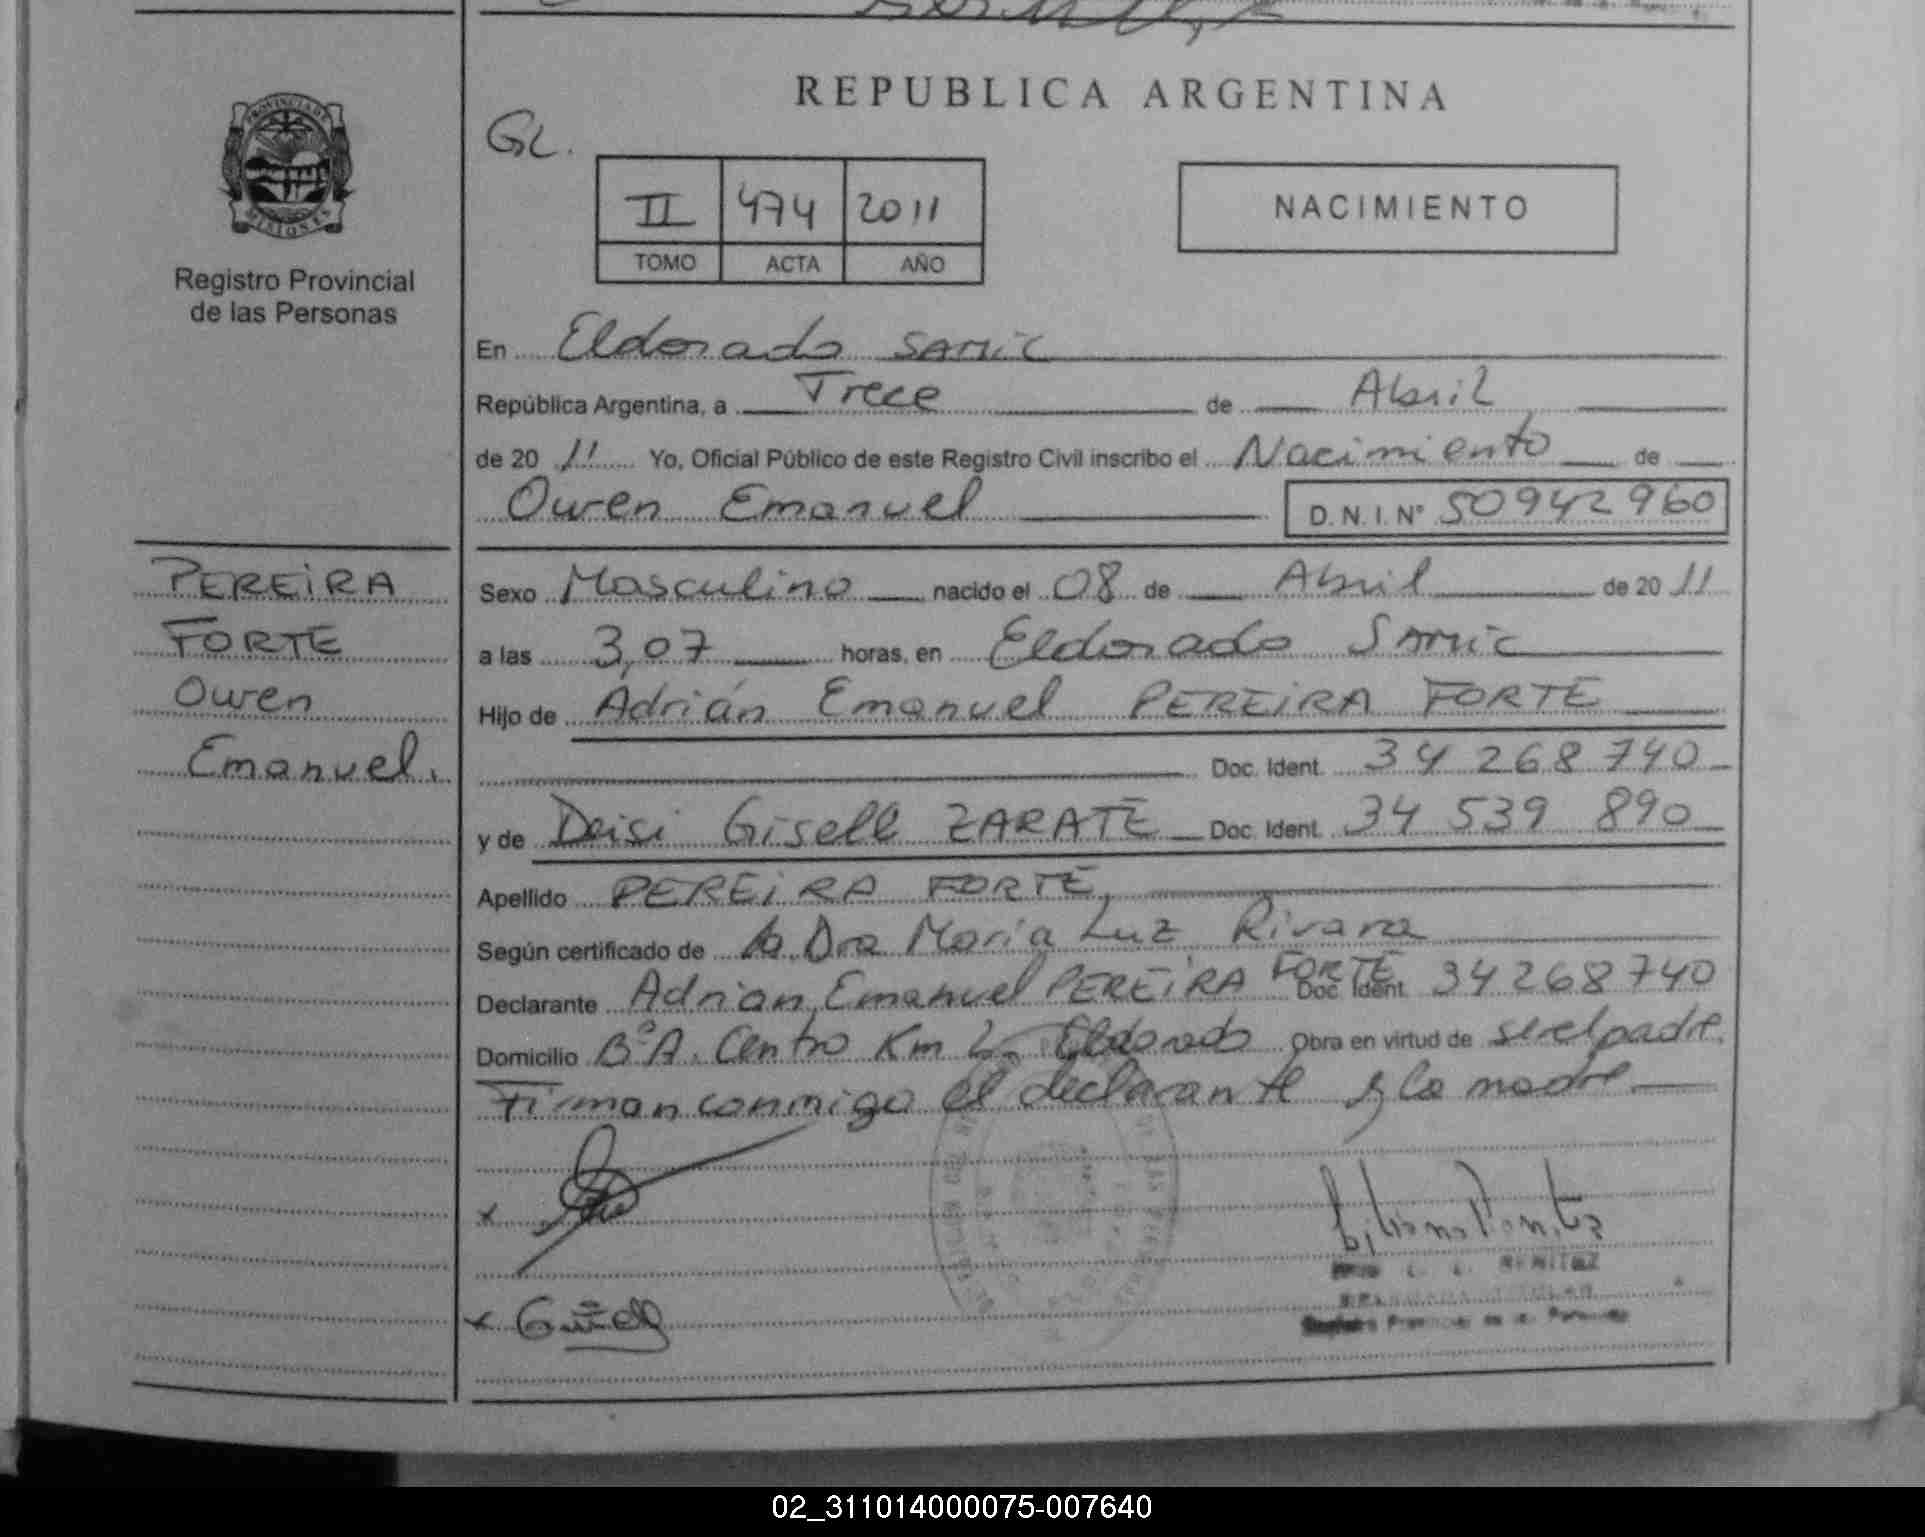 REPUBLICA ARGENTINA
GL.
PROVINCIA DE
MISIONES
II 474 2011
TOMO ACTA AÑO
NACIMIENTO
Registro Provincial
de las Personas
En Eldorado SAMIC
República Argentina, a Trece de Abril
de 20 11 Yo, Oficial Público de este Registro Civil inscribo el Nacimiento de
Owen Emanuel D.N.I.Nº 50942960
PEREIRA
FORTE
Owen
Emanuel.
Sexo Masculino nacido el 08 de Abril de 20 11
a las 3,07 horas, en Eldorado SAMIC
Hijo de Adrián Emanuel PEREIRA FORTE
Doc. Ident. 34 268 740
y de Deisi Giselle ZARATE Doc. Ident. 34 539 890
Apellido PEREIRA FORTE
Según certificado de la Dra Maria Luz Rivara
Declarante Adrian Emanuel PEREIRA FORTE Doc. Ident. 34 268 740
Domicilio BºA. Centro Km 2. Eldorado Obra en virtud de ser el padre.
Firman conmigo el declarante y la madre
x
x
BENITEZ
02_311014000075-007640